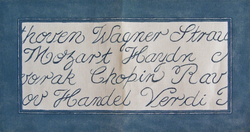 thoven Wagner Strau
Mozart Haydn c
vorak Chopin Rav
ov Handel Verdi S